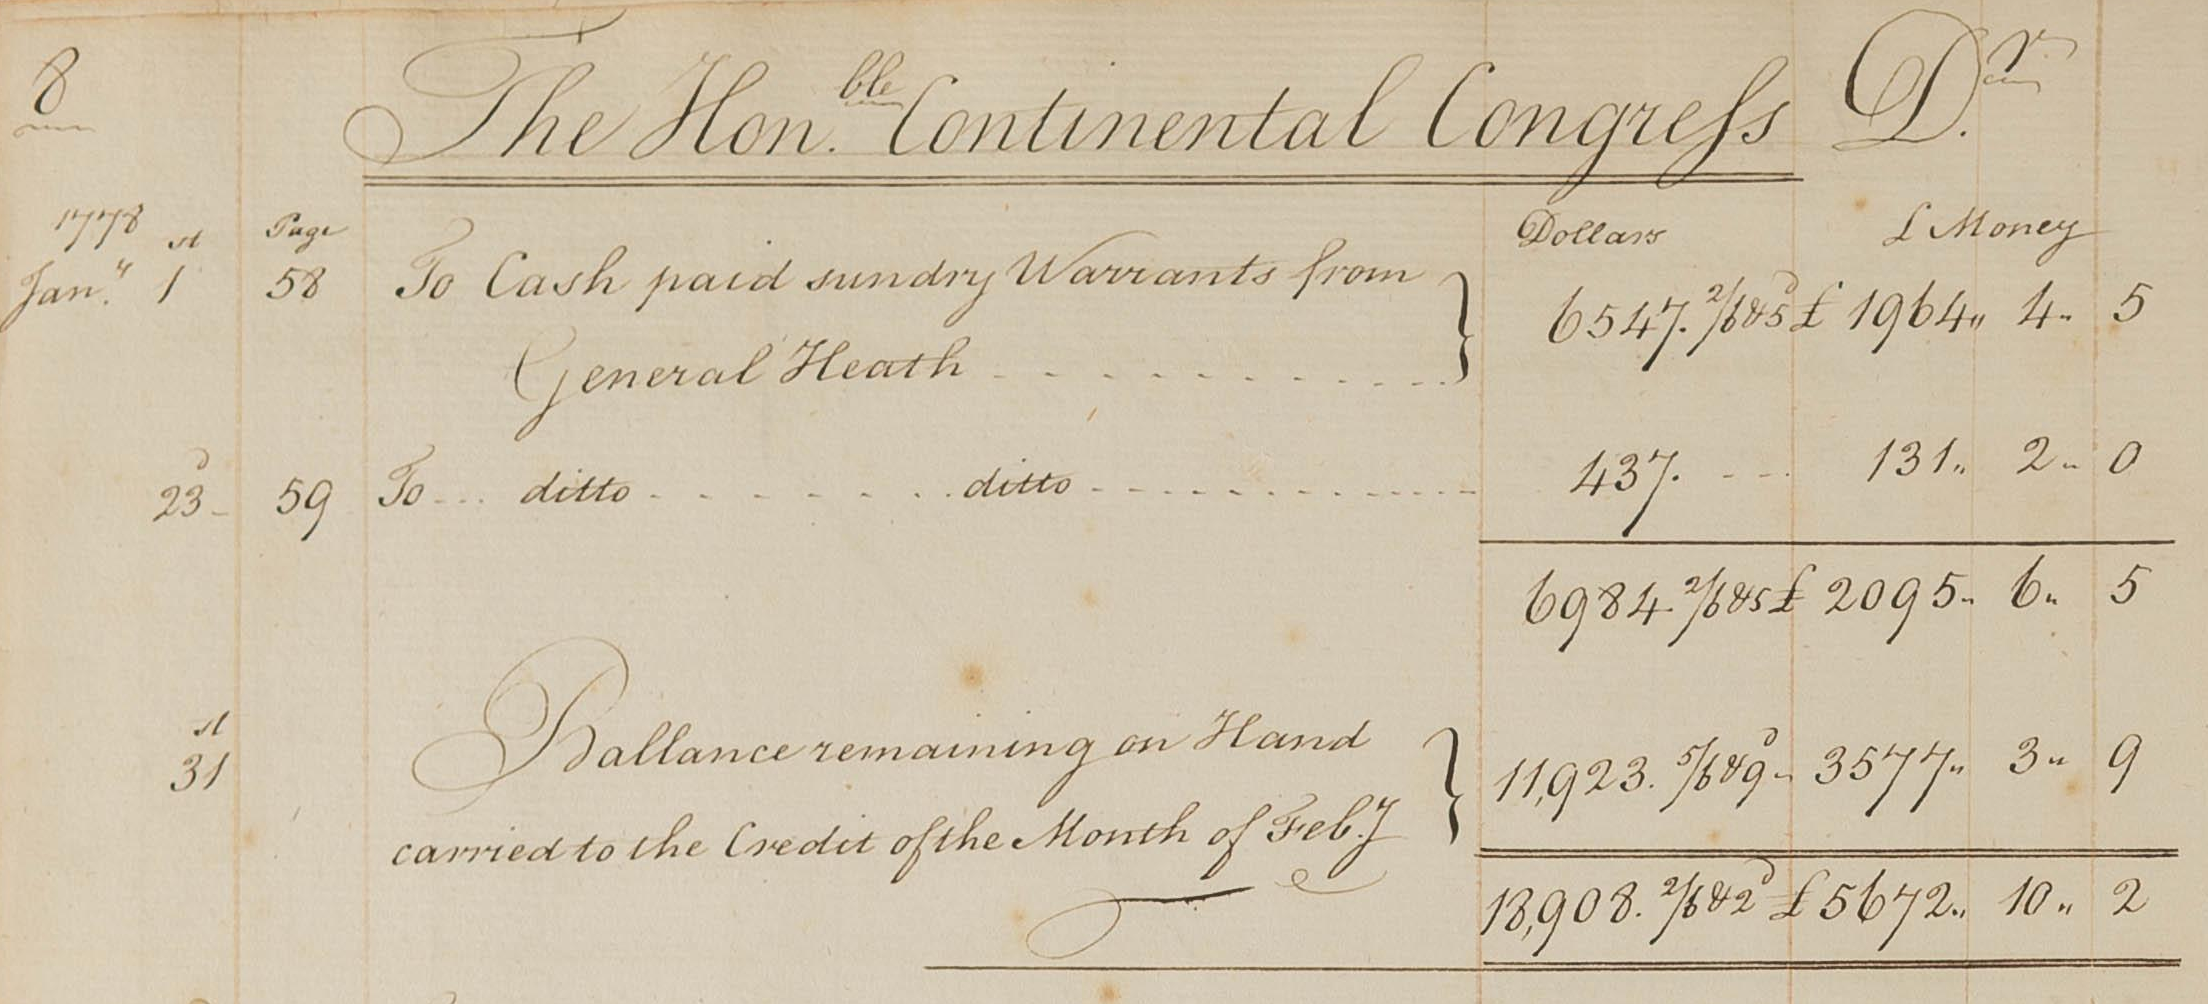 8
The Hon.ble Continental Congress D.r
1778 Page Dollars £ Money
Jan.y 1st 58 To Cash paid sundry Warrants from
General Heath - - - - - - - - - - - } 6547. 2/6 & 5d £ 1964,, 4,, 5
23d 59 To - - - ditto - - - - - - - ditto - - - - - - - - - - - 437. - - - 131,, 2,, 0
6984. 2/6 & 5 £ 2095,, 6,, 5
31st Ballance remaining on Hand
carried to the Credit of the Month of Feb.y } 11,923. 5/6 & 9d 3577,, 3,, 9
18,908. 2/6 & 2d £ 5672,, 10,, 2